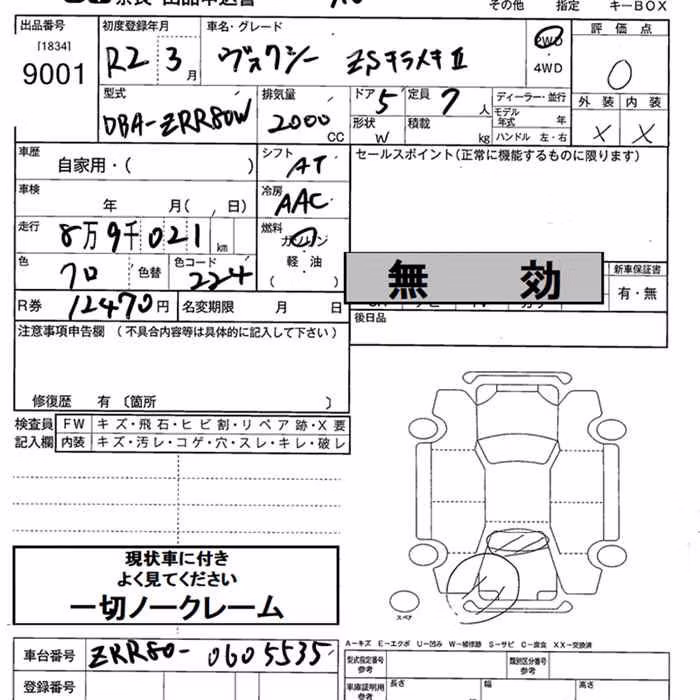 その他 指定 キーBOX
出品番号 初度登録年月 車名・グレード 評価点
[1834]
9001 R2 3月 ヴォクシー ZSキラメキⅡ 2WD
4WD
型式 排気量 ドア 5 定員 7人 ディーラー・並行 外装 内装
DBA-ZRR80W 2000CC 形状 W 積載 kg モデル年式 年
ハンドル 左・右 × ×
車歴 自家用・( ) シフト AT セールスポイント(正常に機能するものに限ります)
車検 年 月( 、 日) 冷房 AAC
走行 8万9千021km 燃料 ガソリン
色 クロ 色替 色コード 224 軽・油
( )
無効
新車保証書
有・無
R券 12470円 名変期限 月 日
後日品
注意事項申告欄 (不具合内容等は具体的に記入して下さい)
修復歴 有 〔箇所 〕
検査員 FW キズ・飛石・ヒビ割・リペア跡・X要
記入欄 内装 キズ・汚レ・コゲ・穴・スレ・キレ・破レ
現状車に付き
よく見てください
一切ノークレーム
スペア
A-キズ E-エクボ U-凹み W-補修跡 S-サビ C-腐食 XX-交換済
車台番号 ZRR80-0605535
型式指定番号 参考 類別区分番号 参考
登録番号 車庫証明用 参考 長さ 幅 高さ